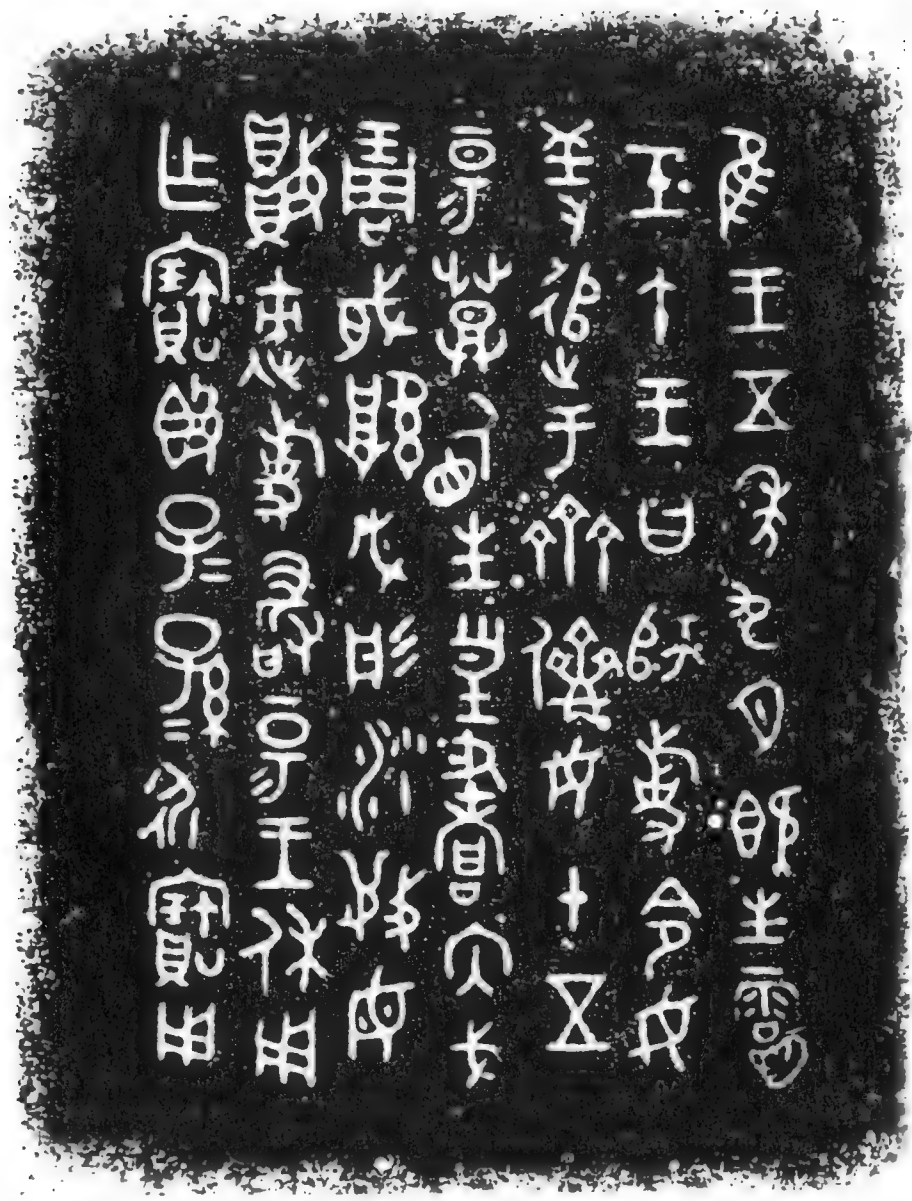 隹王五年九月既生霸
壬午王曰師旋令女
羞追于齊儕女十五
昜登盾生皇畫內戈
琱㦸必彤沙敬毋
敗速旋敢昜王休用
乍寶𣪘子=孫=永寶用